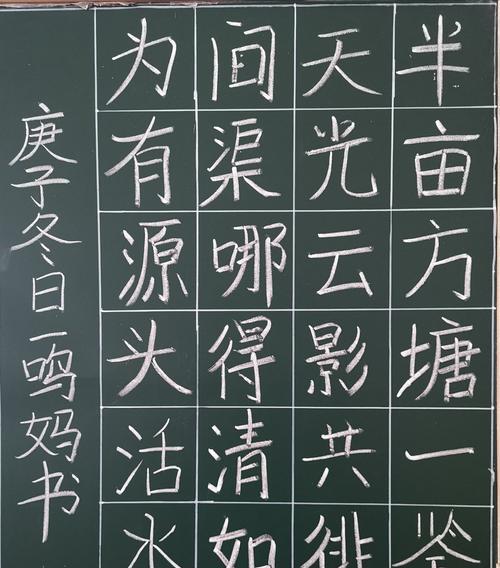 半亩方塘一鉴
天光云影共徘
间渠哪得清如
为有源头活水
庚子冬日一鸣妈书